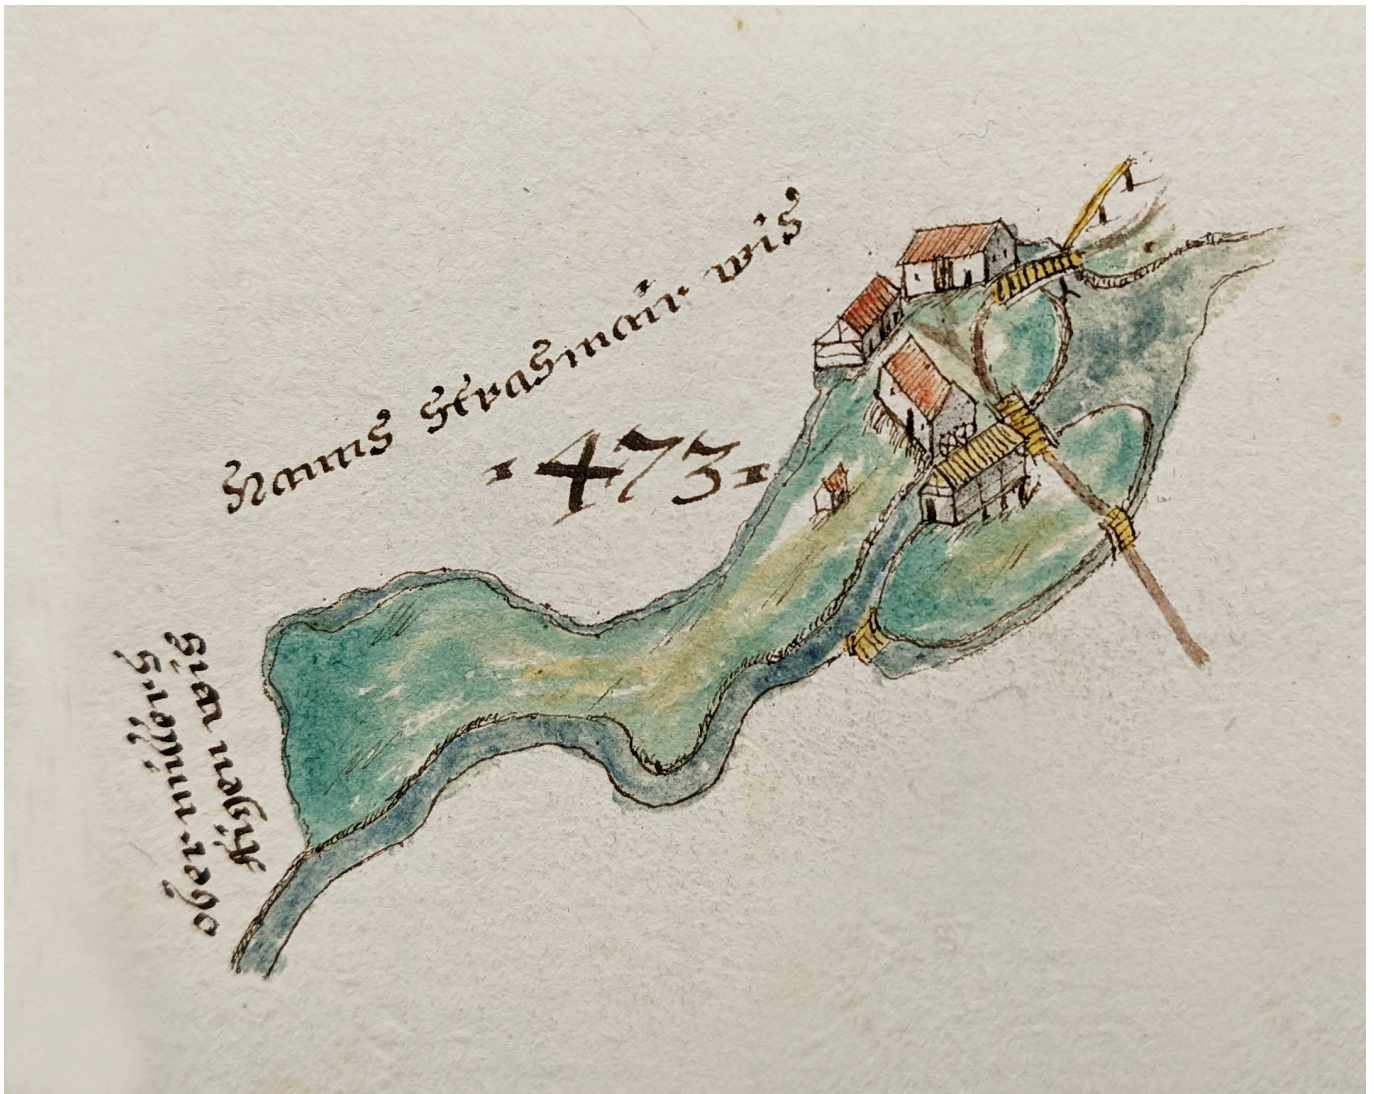 Hanns Strasmair wis
·473·
ober müllners
Aigen wis